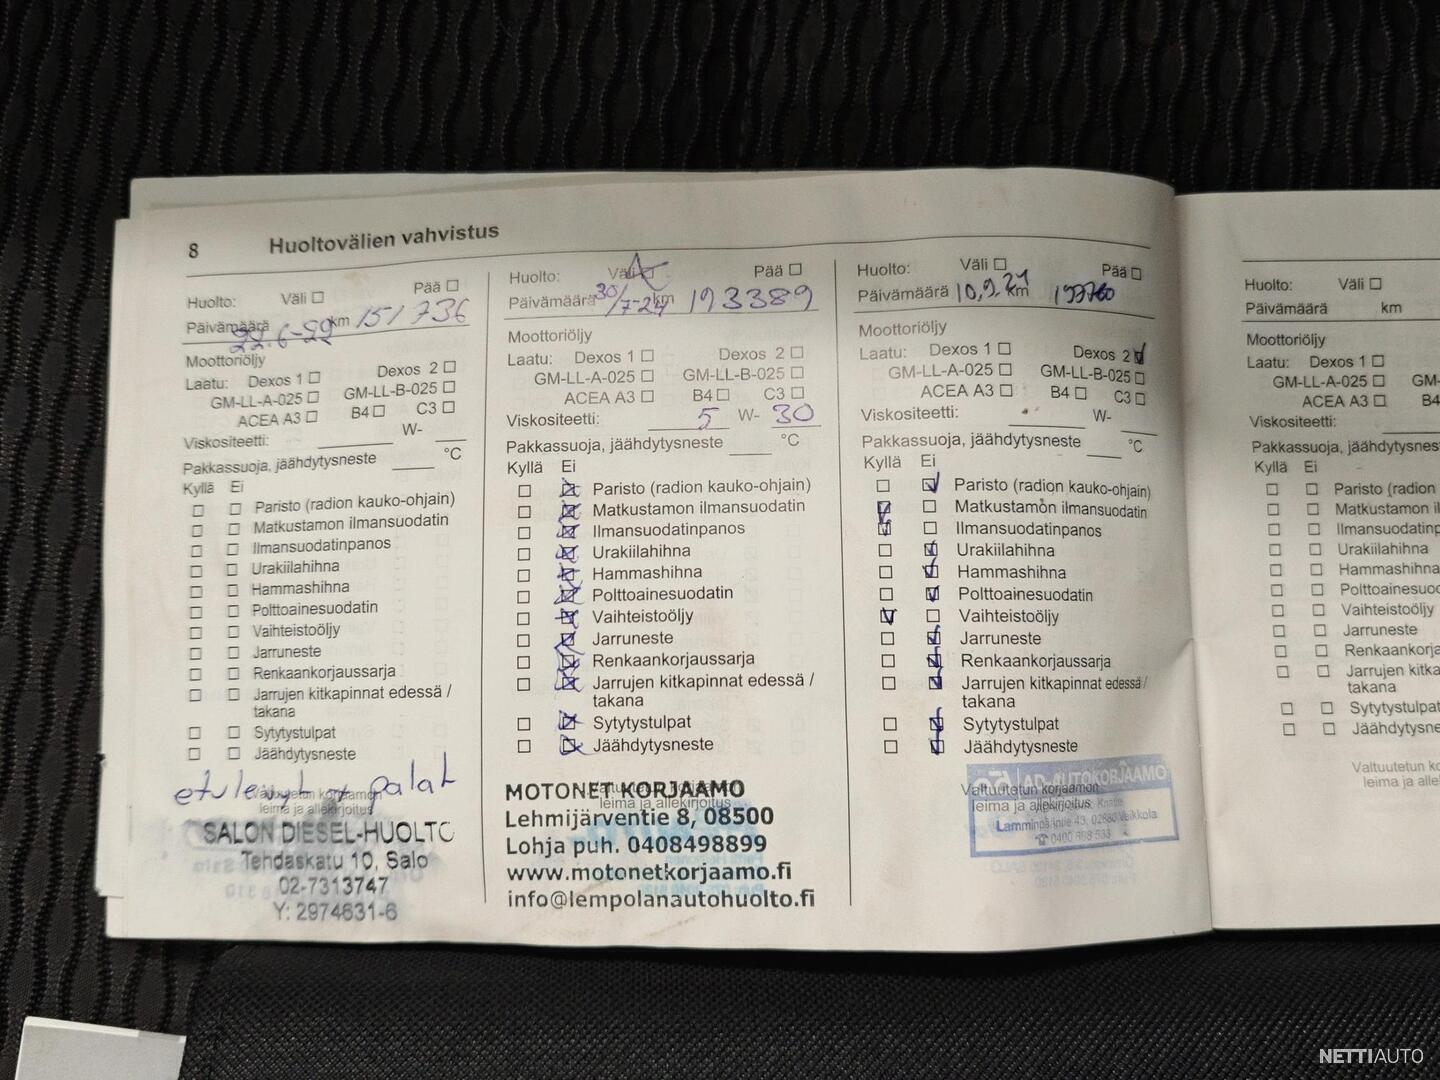 8 Huoltovälien vahvistus
Huolto: Väli Pää
Päivämäärä 22.6-22 km 151 736
Moottoriöljy
Laatu: Dexos 1 Dexos 2
GM-LL-A-025 GM-LL-B-025
ACEA A3 B4 C3
Viskositeetti: W-
Pakkassuoja, jäähdytysneste °C
Kyllä Ei
Paristo (radion kauko-ohjain)
Matkustamon ilmansuodatin
Ilmansuodatinpanos
Urakiilahihna
Hammashihna
Polttoainesuodatin
Vaihteistoöljy
Jarruneste
Renkaankorjaussarja
Jarrujen kitkapinnat edessä /
takana
Sytytystulpat
Jäähdytysneste
palat
Valtuutetun korjaamon
leima ja allekirjoitus
SALON DIESEL-HUOLTO
Tehdaskatu 10, Salo
02-7313747
Y: 2974631-6
Huolto: Väli Pää
Päivämäärä 30/7-24 km 193389
Moottoriöljy
Laatu: Dexos 1 Dexos 2
GM-LL-A-025 GM-LL-B-025
ACEA A3 B4 C3
Viskositeetti: 5 W- 30
Pakkassuoja, jäähdytysneste °C
Kyllä Ei
Paristo (radion kauko-ohjain)
Matkustamon ilmansuodatin
Ilmansuodatinpanos
Urakiilahihna
Hammashihna
Polttoainesuodatin
Vaihteistoöljy
Jarruneste
Renkaankorjaussarja
Jarrujen kitkapinnat edessä /
takana
Sytytystulpat
Jäähdytysneste
Valtuutetun korjaamon
leima ja allekirjoitus
MOTONET KORJAAMO
Lehmijärventie 8, 08500
Lohja puh. 0408498899
www.motonetkorjaamo.fi
info@lempolanautohuolto.fi
Huolto: Väli Pää
Päivämäärä 10.9. km
Moottoriöljy
Laatu: Dexos 1 Dexos 2
GM-LL-A-025 GM-LL-B-025
ACEA A3 B4 C3
Viskositeetti: W-
Pakkassuoja, jäähdytysneste °C
Kyllä Ei
Paristo (radion kauko-ohjain)
Matkustamon ilmansuodatin
Ilmansuodatinpanos
Urakiilahihna
Hammashihna
Polttoainesuodatin
Vaihteistoöljy
Jarruneste
Renkaankorjaussarja
Jarrujen kitkapinnat edessä /
takana
Sytytystulpat
Jäähdytysneste
AD-AUTOKORJAAMO
Valtuutetun korjaamon
leima ja allekirjoitus
Lamminpääntie 43, 02880 Veikkola
Huolto: Väli
Päivämäärä km
Moottoriöljy
Laatu: Dexos 1
GM-LL-A-025 GM-
ACEA A3 B4
Viskositeetti:
Pakkassuoja, jäähdytysneste
Kyllä Ei
Paristo (radion
Matkustamon il
Ilmansuodatinp
Urakiilahihna
Hammashihna
Polttoainesuod
Vaihteistoöljy
Jarruneste
Renkaankorja
Jarrujen kitkap
takana
Sytytystulpat
Jäähdytysne
Valtuutetun ko
leima ja allek
NETTIAUTO